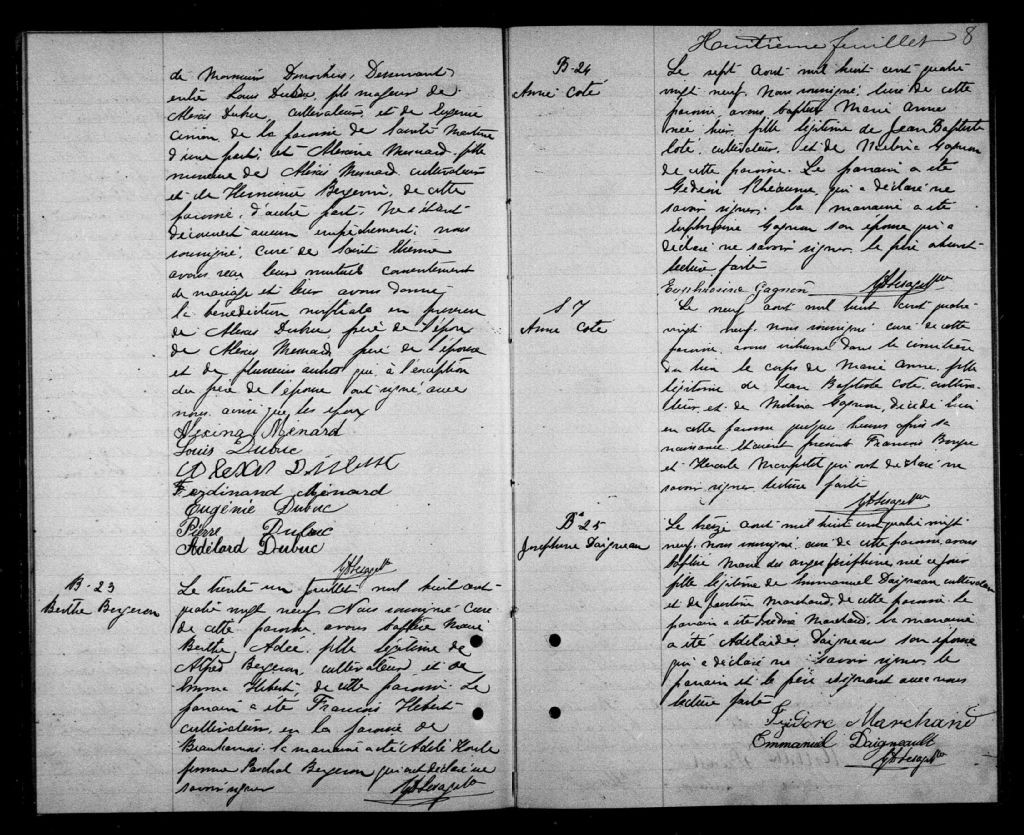 de Monsieur Desrochers, Desservant
entre Louis Dubuc, fils majeur de
Alexis Dubuc, cultivateur, et de Eugénie
de la paroisse de Sainte Martine
d'une part; et Alexina Mesnard fille
mineure de Alexis Mesnard cultivateur
et de Herminie Bergevin, de cette
paroisse, d'autre part; Ne s'étant
découvert aucun empêchement; nous
soussigné, curé de Saint Etienne
avons reçu leur mutuel consentement
de mariage et leur avons donné
la bénédiction nuptiale en présence
de Alexis Dubuc père de l'époux
de Alexis Mesnard, père de l'épouse
et de plusieurs autres qui, à l'exception
du père de l'épouse ont signé avec
nous ainsi que les époux
Alexina Ménard
Louis Dubuc
Alexis
Ferdinand Ménard
Eugénie Dubuc
Pierre Dubuc
Adélard Dubuc
B-23
Berthe Bergeron
Le trente un Juillet mil huit cent
quatre vingt neuf Nous soussigné Curé
de cette paroisse avons baptisé Marie
Berthe, fille légitime de
Alfred Bergeron, cultivateur et de
Emma Hébert, de cette paroisse. Le
parrain a été François Hébert
cultivateur, en la paroisse de
Beauharnois la marraine a été Adèle
femme Paschal Bergeron qui ont déclaré ne
savoir signer
Huitième feuillet 8
B-24
Anne Coté
Le sept Aout mil huit cent quatre
vingt neuf. Nous soussigné, Curé de cette
paroisse, avons baptisé Marie Anne
née hier, fille légitime de Jean Baptiste
Coté, cultivateur, et de Gagnon
de cette paroisse. Le parrain a été
Gédéon Rhéaume, qui a déclaré ne
savoir signer. La marraine a été
Euphrosine Gagnon son épouse qui a
déclaré ne savoir signer, le père absent
lecture faite
Euphrosine Gagnon
S 7
Anne Coté
Le neuf aout mil huit cent quatre
vingt neuf. Nous soussigné curé de cette
paroisse, avons inhumé dans le cimetière
du lieu le corps de Marie Anne, fille
légitime de Jean Baptiste Coté, cultiva-
teur, et de Gagnon, décédé hier
en cette paroisse quelques heures après sa
naissance Etaient présent François
et Hercule qui ont déclaré ne
savoir signer lecture faite
B 25
Joséphine Daigneau
Le treize aout mil huit cent quatre vingt
neuf, nous soussigné, curé de cette paroisse, avons
baptisé Marie des anges Joséphine née ce jour
fille légitime de Emmanuel Daigneau cultivateur
et de Marchand, de cette paroisse. Le
parrain a été Isidore Marchand, la marraine
a été Adelaide Daigneau son épouse
qui a déclaré ne savoir signer le
parrain et le père signant avec nous
lecture faite
Isidore Marchand
Emmanuel Daigneault